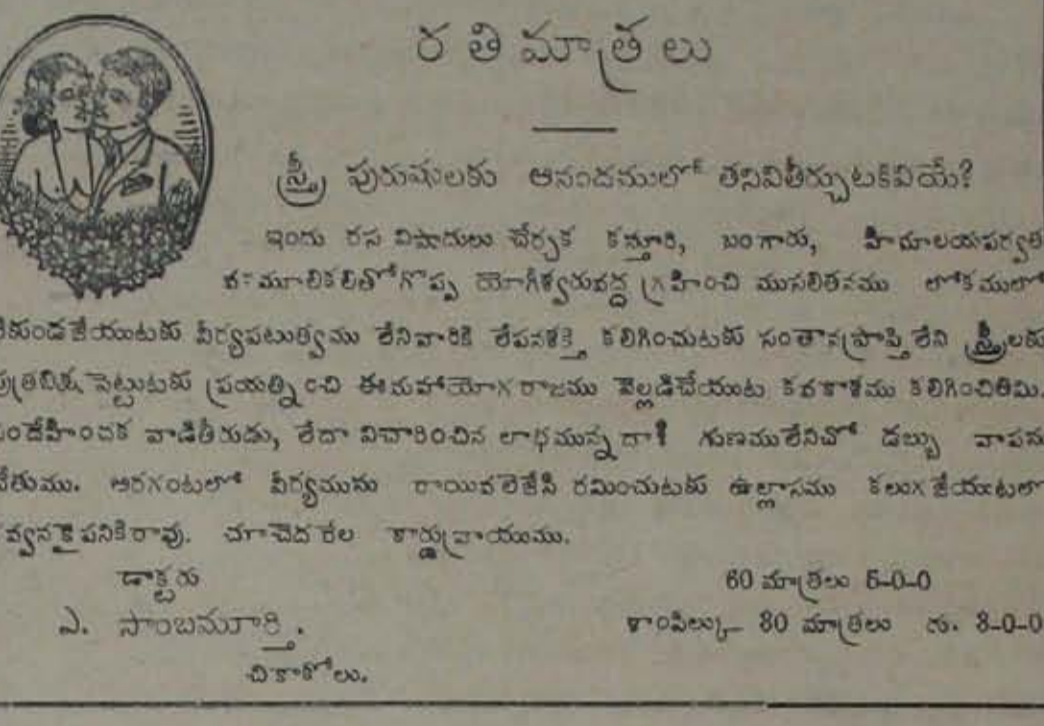 రతి మాత్రలు
స్త్రీ పురుషులకు ఆనందములో తనివితీర్చుటకివియే?
ఇందు రస విషాదులు చేర్చక కస్తూరి, బంగారు, హిమాలయపర్వత
వనమూలికలతో గొప్ప యోగీశ్వరువద్ద గ్రహించి ముసలితనము లోకములో
లేకుండజేయుటకు వీర్యపటుత్వము లేనివారికి లేపనశక్తి కలిగించుటకు సంతానప్రాప్తి లేని స్త్రీలకు
పుత్రభిక్ష పెట్టుటకు ప్రయత్నించి ఈమహాయోగరాజము వెల్లడిచేయుట కవకాశము కలిగించితిమి.
సందేహించక వాడితీరుడు, లేదా విచారించిన లాభమున్నదా? గుణములేనిచో డబ్బు వాపసు
చేతుము. అరగంటలో వీర్యమును రాయివలెజేసి రమించుటకు ఉల్లాసము కలుగజేయుటలో
నెవ్వనికైపనికిరావు. చూచెదరేల కార్డువ్రాయుము.
డాక్టరు
ఎ. సాంబమూర్తి.
చికాకోలు.
60 మాత్రలు 5-0-0
శాంపిల్కు 80 మాత్రలు రు. 3-0-0